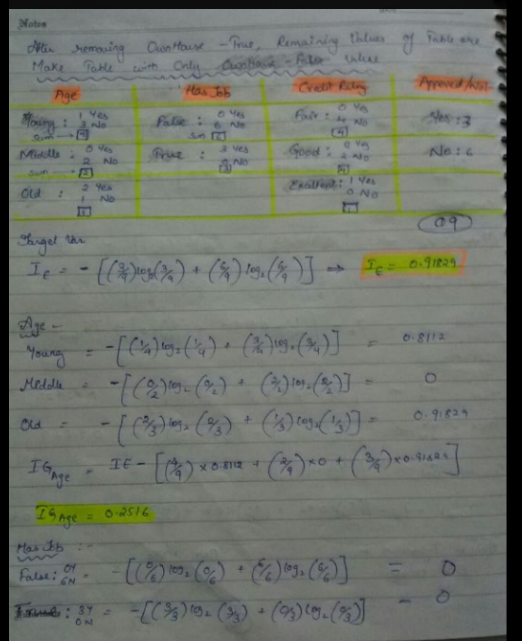 Notes
After removing OwnHouse - True, Remaining Values of Table are
Make Table with Only OwnHouse - False value
Age Has Job Credit Rating Approved/Not
Young: 1 Yes 3 No sum → 4 False: 0 Yes 6 No sum 6 Fair: 0 Yes 4 No 4 Yes: 3
Middle: 0 Yes 2 No sum → 2 True: 3 Yes 0 No 3 Good: 2 Yes 2 No No: 6
Old: 2 Yes 1 No 3 Excellent: 1 Yes 0 No 1
09
Target Var
I_E = -[(3/9)log₂(3/9) + (6/9)log₂(6/9)] → I_E = 0.91829
Age -
Young = -[(1/4)log₂(1/4) + (3/4)log₂(3/4)] = 0.8112
Middle = -[(0/2)log₂(0/2) + (2/2)log₂(2/2)] = 0
Old = -[(2/3)log₂(2/3) + (1/3)log₂(1/3)] = 0.91829
IG_Age = IE - [(4/9) × 0.8112 + (2/9) × 0 + (3/9) × 0.91829]
IG_Age = 0.2516
Has Job :-
False: 0Y 6N = -[(0/6)log₂(0/6) + (6/6)log₂(6/6)] = 0
True: 3Y 0N = -[(3/3)log₂(3/3) + (0/3)log₂(0/3)] = 0